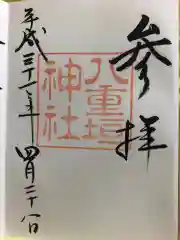 参拝
八重垣
神社
平成三十一年四月二十八日